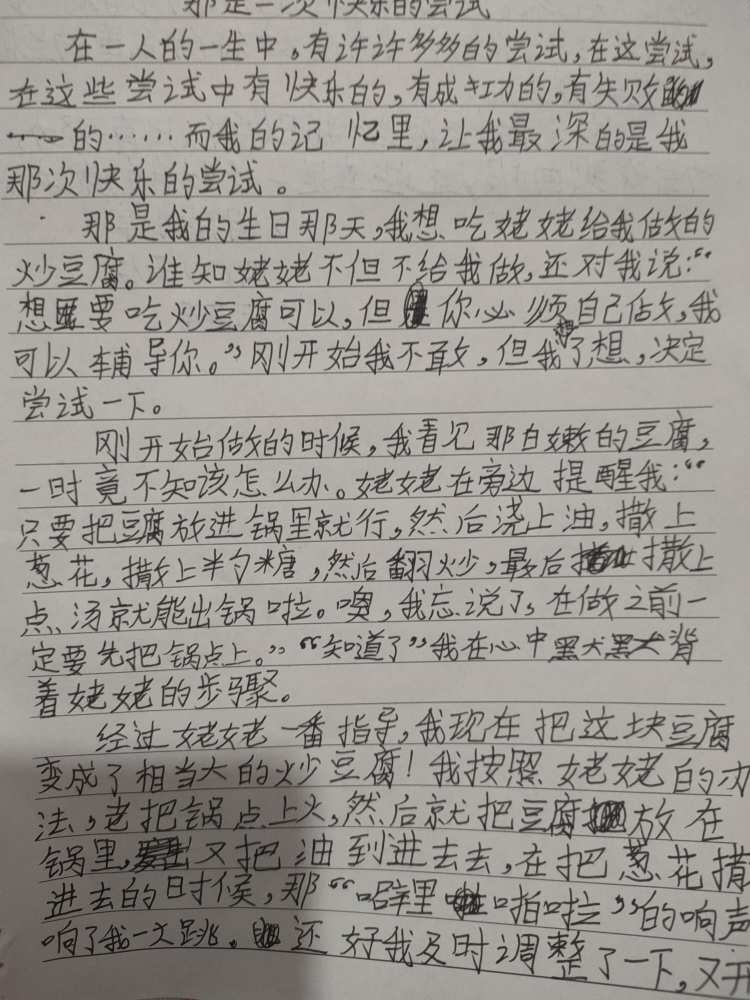 那是一次快乐的尝试
在一人的一生中，有许许多多的尝试，在这尝试，
在这些尝试中有快乐的，有成功的，有失败
的……而我的记忆里，让我最深的是我
那次快乐的尝试。
那是我的生日那天，我想吃姥姥给我做的
炒豆腐。谁知姥姥不但不给我做，还对我说：“
想要吃炒豆腐可以，但你必须自己做，我
可以辅导你。”刚开始我不敢，但我想了想，决定
尝试一下。
刚开始做的时候，我看见那白嫩的豆腐，
一时竟不知该怎么办。姥姥在旁边提醒我：“
只要把豆腐放进锅里就行，然后浇上油，撒上
葱花，撒上半勺糖，然后翻炒，最后撒上
点汤就能出锅啦。噢，我忘说了，在做之前一
定要先把锅点上。”“知道了”我在心中默默背
着姥姥的步骤。
经过姥姥一番指导，我现在把这块豆腐
变成了相当大的炒豆腐！我按照姥姥的办
法，老把锅点上火，然后就把豆腐放在
锅里，又把油到进去去，在把葱花撒
进去的时候，那“噼里啪啦”的响声
响了我一大跳。还好我及时调整了一下，又开